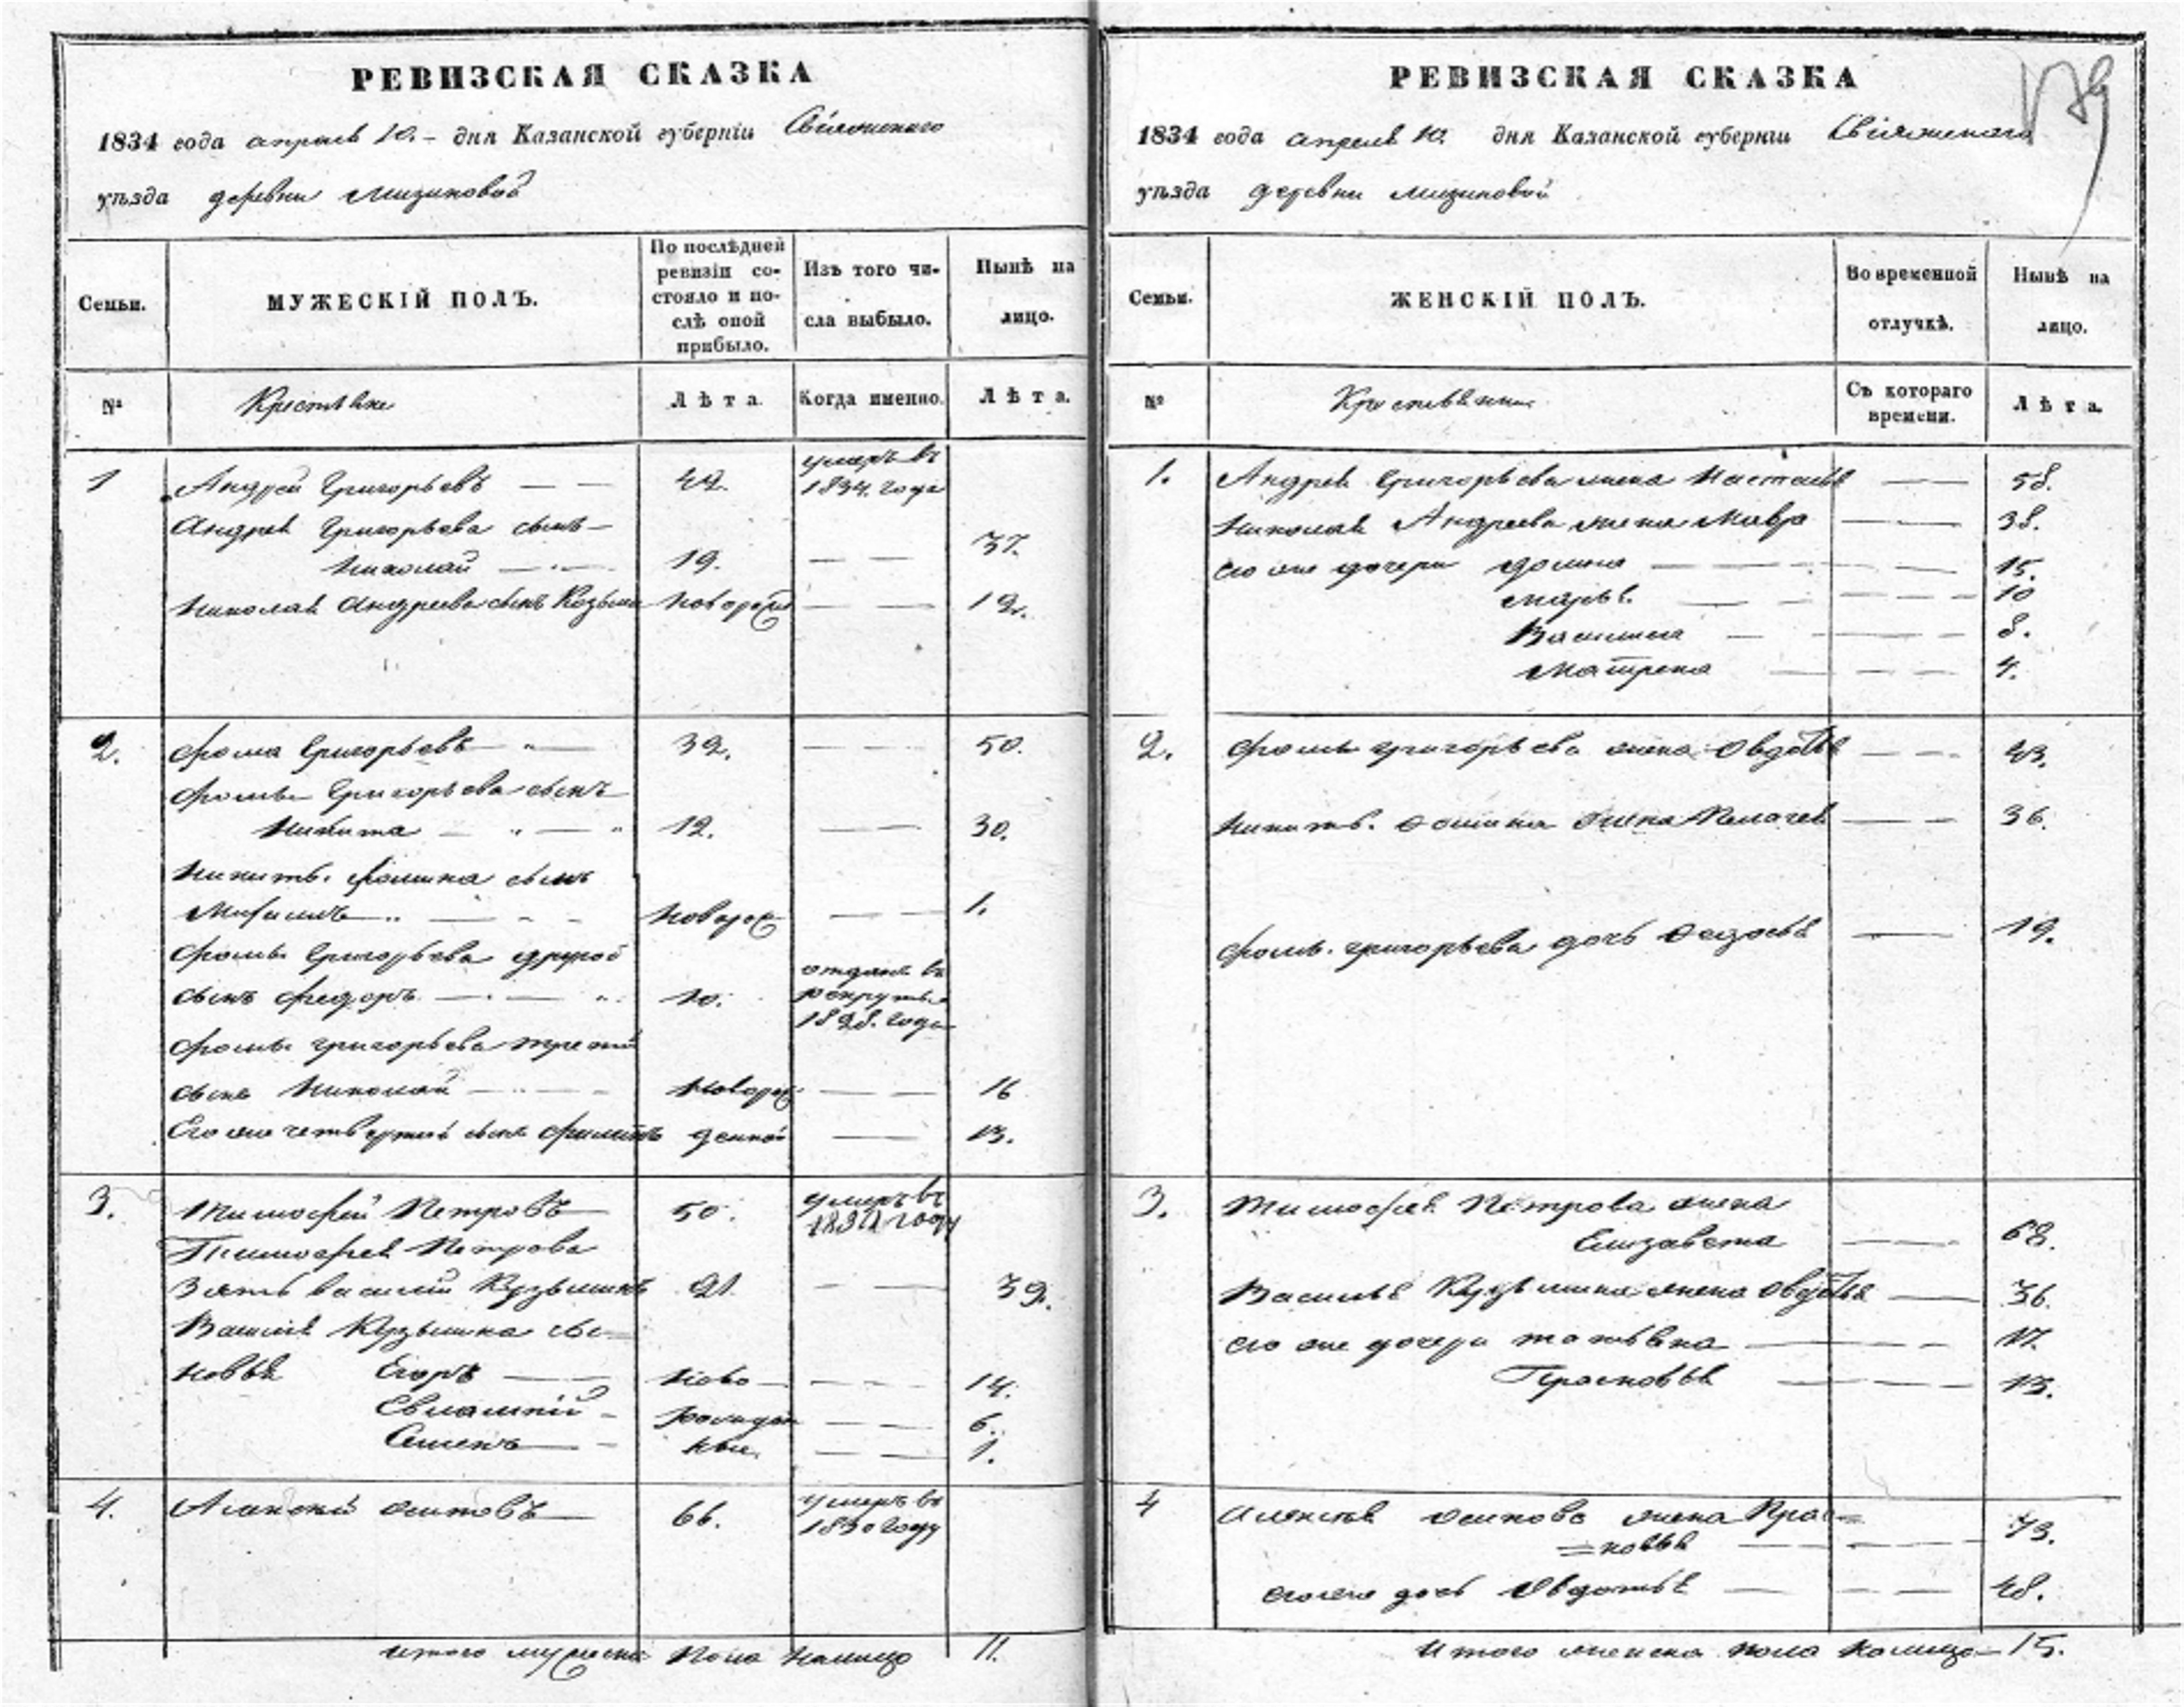 РЕВИЗСКАЯ СКАЗКА
1834 года апреля 10. - дня Казанской губерніи Свіяжскаго
уѣзда деревни Мизиновой
Семьи.
МУЖЕСКІЙ ПОЛЪ.
По послѣдней ревизіи со-
стояло и по-
слѣ оной
прибыло.
Изъ того чи-
сла выбыло.
Нынѣ на
лицо.
№
Крестьяне
Лѣта
Когда именно.
Лѣта.
1 Андрей Григорьевъ — — 42. умеръ въ
1834. года
Андрея Григорьева сынъ —
Николай — 19. — — 37.
Николая Андреева сынъ Козьма новорож — — 12.
2. Фома Григорьевъ — 32. — — 50.
Фомы Григорьева сынъ
Никита — 12. — — 30.
Никиты Фомина сынъ
новорож — — 1.
Фомы Григорьева другой
сынъ Федоръ — 10. отданъ въ
рекруты
1828. года
Фомы Григорьева третій
сынъ Николай — новорож — — 16
Его же четвертой сынъ Филипъ денной — 13.
3. Тимофей Петровъ — 50. умеръ въ
году
Тимофея Петрова
Зять Василий Кузьминъ 21. — — 39.
Василія Кузьмина сы=
новья Егоръ — ново — — — 14.
Евлампій — рожден — — 6.
Семенъ — ные — — 1.
4. Алексей Осиповъ — 66. умеръ въ
1830 году
Итого мужеска Пола налицо 11.
РЕВИЗСКАЯ СКАЗКА
1834 года апреля 10. дня Казанской губерніи Свіяжскаго
уѣзда деревни Мизиновой
Семьи.
ЖЕНСКІЙ ПОЛЪ.
Во временной
отлучкѣ.
Нынѣ на
лицо.
№
Съ котораго
времени.
Лѣта.
1. Андрея Григорьева жена Настасья — — 58.
Николая Андреева жена Мавра — — 38.
его же дочери — — — 15.
Марья — — — 10
Василиса — — — 8.
Матрена — — — 4.
2. Фомы Григорьева жена Овдотья — — 43.
Никиты Фомина жена Пелагея — — 36.
Фомы Григорьева дочь Федосья — 19.
3. Тимофея Петрова жена
Елизавета — — 68.
Василья Кузьмина жена Овдотья — 36.
его же дочери Татьяна — — 17.
Прасковья — — — 13.
4 Алексея Осипова жена Прас=
=ковья — — — 73.
его же дочь Овдотья — — — 48.
Итого женска пола налицо — 15.